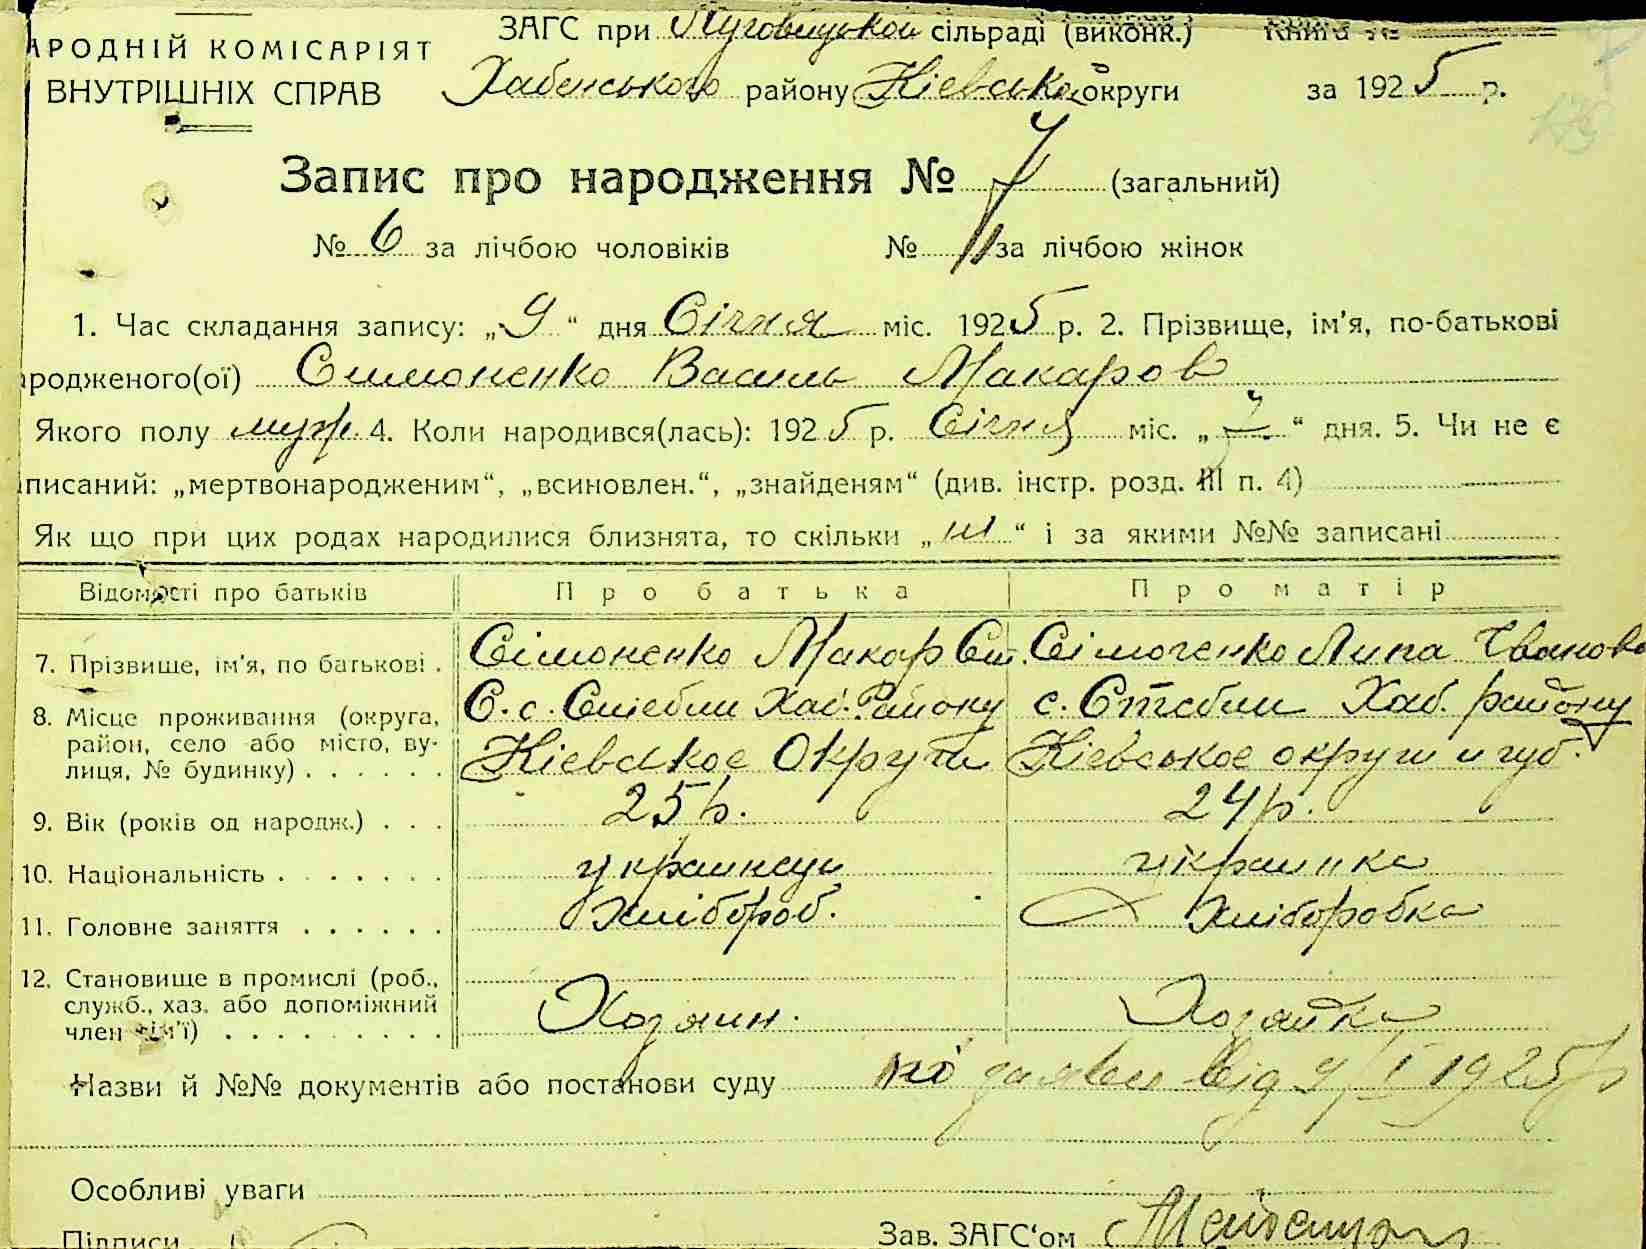 АРОДНІЙ КОМІСАРІЯТ
ВНУТРІШНІХ СПРАВ
ЗАГС при Луговицькой сільраді (виконк.) Книга №
Хабенського району Кіевской округи за 1925 р.
Запис про народження № 7 (загальний)
№ 6 за лічбою чоловіків № за лічбою жінок
1. Час складання запису: „9“ дня Січня міс. 1925 р. 2. Прізвище, ім’я, по-батькові
родженого(ої) Симоненко Василь Макаров
Якого полу муж. 4. Коли народився(лась): 1925 р. Січня міс. „7“ дня. 5. Чи не є
писаний: „мертвонародженим“, „всиновлен.“, „знайденям“ (див. інстр. розд. III п. 4)
Як що при цих родах народилися близнята, то скільки „ “ і за якими №№ записані
Відомості про батьків Про батька Про матір
7. Прізвище, ім’я, по батькові . Сімоненко Макар Сим. Сімоненко Липа Іванова
8. Місце проживання (округа, С. с. Стебли Хаб. Району с. Стебли Хаб. району
район, село або місто, ву-
лиця, № будинку) . . . . . . Кіевскoе Округи Кіевськое округи и губ.
9. Вік (років од народж.) . . . 25 р. 24 р.
10. Національність . . . . . . . украинець украинка
11. Головне заняття . . . . . . Хлібороб. Хліборобка
12. Становище в промислі (роб.,
служб., хаз. або допоміжний
член сім’ї) . . . . . . . . . Хозяин. Хозяйка
Назви й №№ документів або постанови суду по заяви від 9/I 1925 р
Особливі уваги
Підписи Зав. ЗАГС‘ом